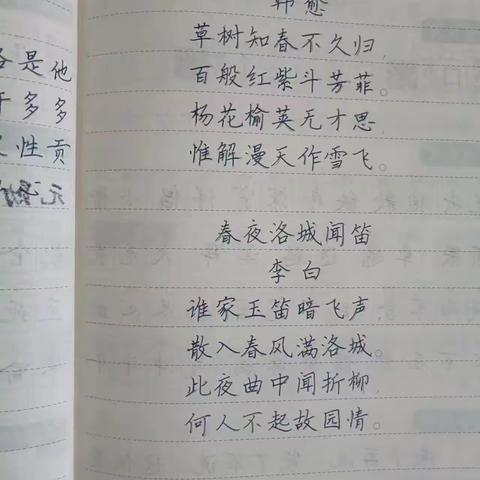 是他
多多
性贡
韩愈
草树知春不久归,
百般红紫斗芳菲。
杨花榆荚无才思,
惟解漫天作雪飞。
春夜洛城闻笛
李白
谁家玉笛暗飞声,
散入春风满洛城。
此夜曲中闻折柳,
何人不起故园情。